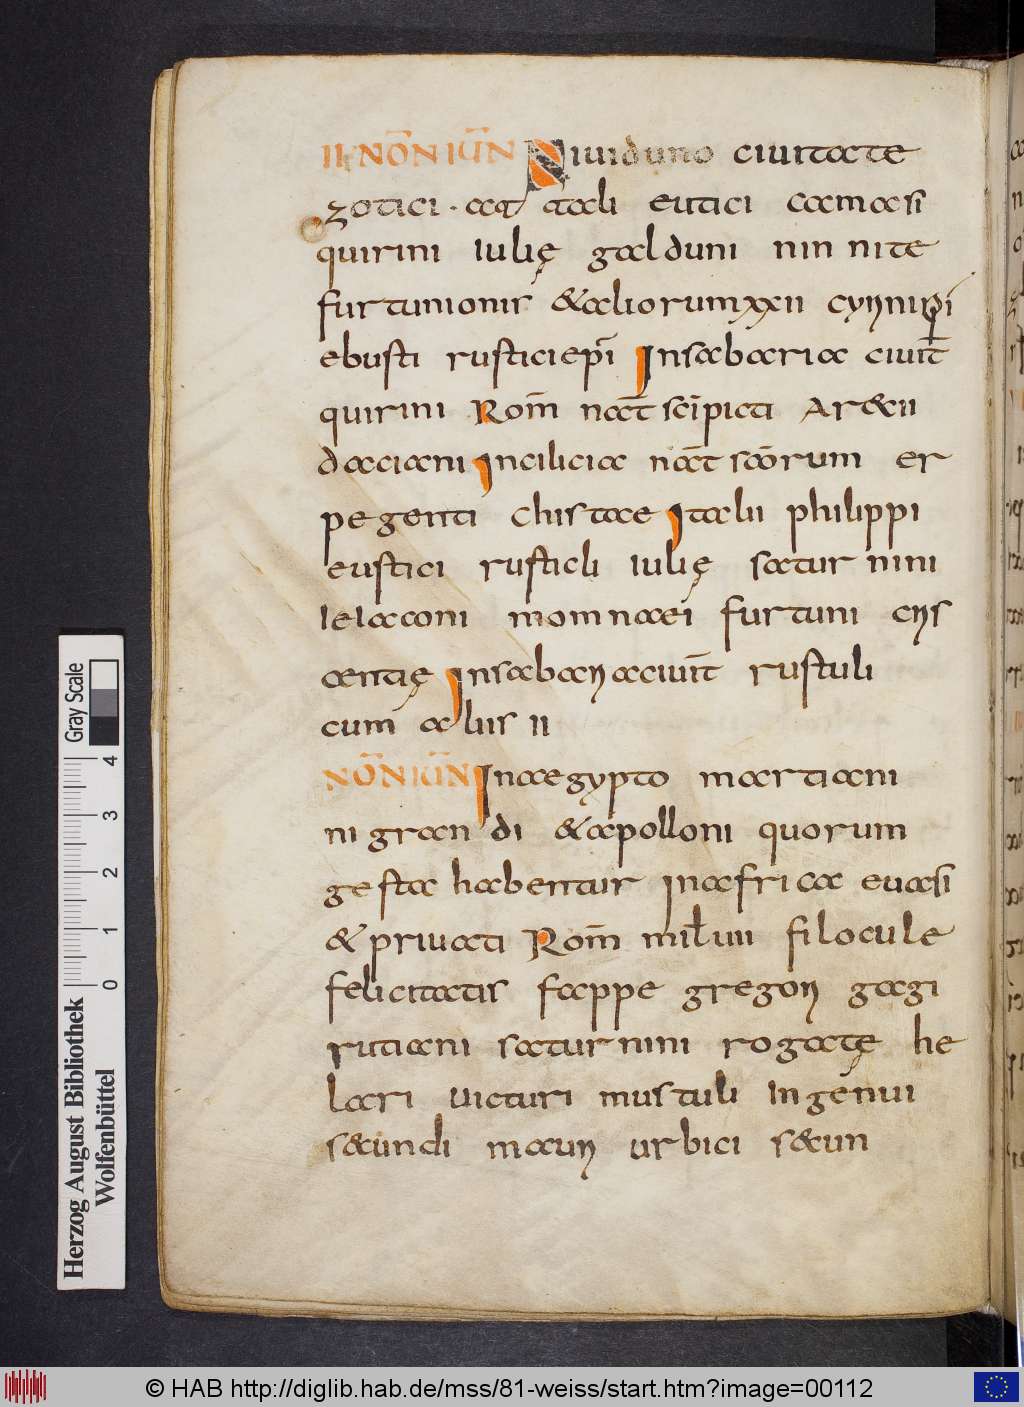 II NON̄ IUN̄ Niuiduno ciuitate
zotici · atq̄ attali eutici camasi
quirini iulię galduni nin nite
furtunionis &aliorum xxii cyrini pi
ebusti rusticiepi In sabaria ciuit̄
quirini Rom̄ nat̄ sc̄i picti Ar&ii
daciani In cilicia nat̄ scōrum er
pegenti chistae Italii philippi
eustici rusticli iulię saturnini
lelacconi momnaei furtuni cris
centię In sabaria ciuit̄ rustuli
cum aliis II
NON̄ IUN̄ In aegypto martiani
nigrandi &apolloni quorum
gesta habentur in africa euasi
&priuati Rom̄ mil̄ uii filocule
felicitatis fappe gregori gagi
rutiani saturnini rogatę he
lari uicturi mustuli ingenui
s&undi mauri urbici s&un
Herzog August Bibliothek
Wolfenbüttel
0 1 2 3 4
Gray Scale
© HAB http://diglib.hab.de/mss/81-weiss/start.htm?image=00112